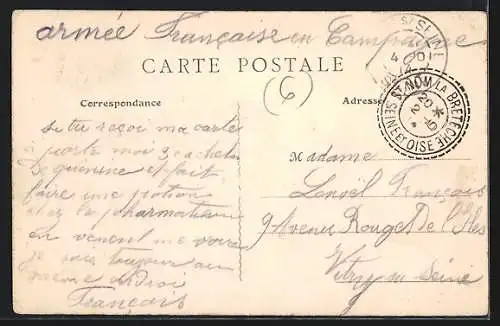 armée Française en Campagne
CARTE POSTALE
(6)
Correspondance
Adresse
ST NOM LA BRETECHE
SEINE ET OISE
20
2
10
si tu reçoi ma carte
porte moi 3 cachets
de quinine et fait
faire une potion
chez le pharmatien
en venent me voire
je suis toujour au
meme endroi
François
Madame
Lenoël François
9 Avenue Rouget De l'Isle
Vitry sur Seine